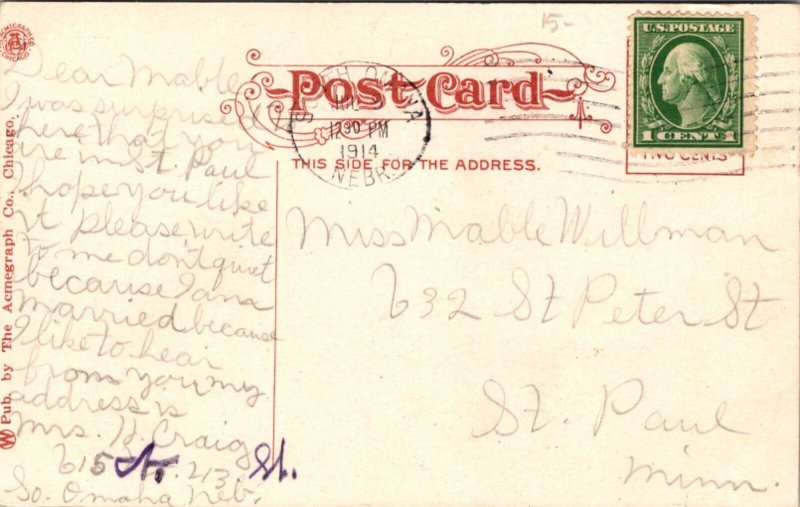 15-
ACMEGRAPH CO.
CHICAGO
Post Card
U.S. POSTAGE
1 CENT 1
TWO CENTS
OMAHA
1230 PM
1914
NEBR.
THIS SIDE FOR THE ADDRESS.
Pub. by The Acmegraph Co., Chicago.
Dear Mable
I was surprised
here that you
are in St. Paul
I hope you like
it please write
to me don't quiet
because I am
married because
I like to hear
from you my
address is
Mrs. H. Craig
615 No. 213 St.
So. Omaha Neb.
Miss Mable Willman
632 St Peter St
St. Paul
Minn.